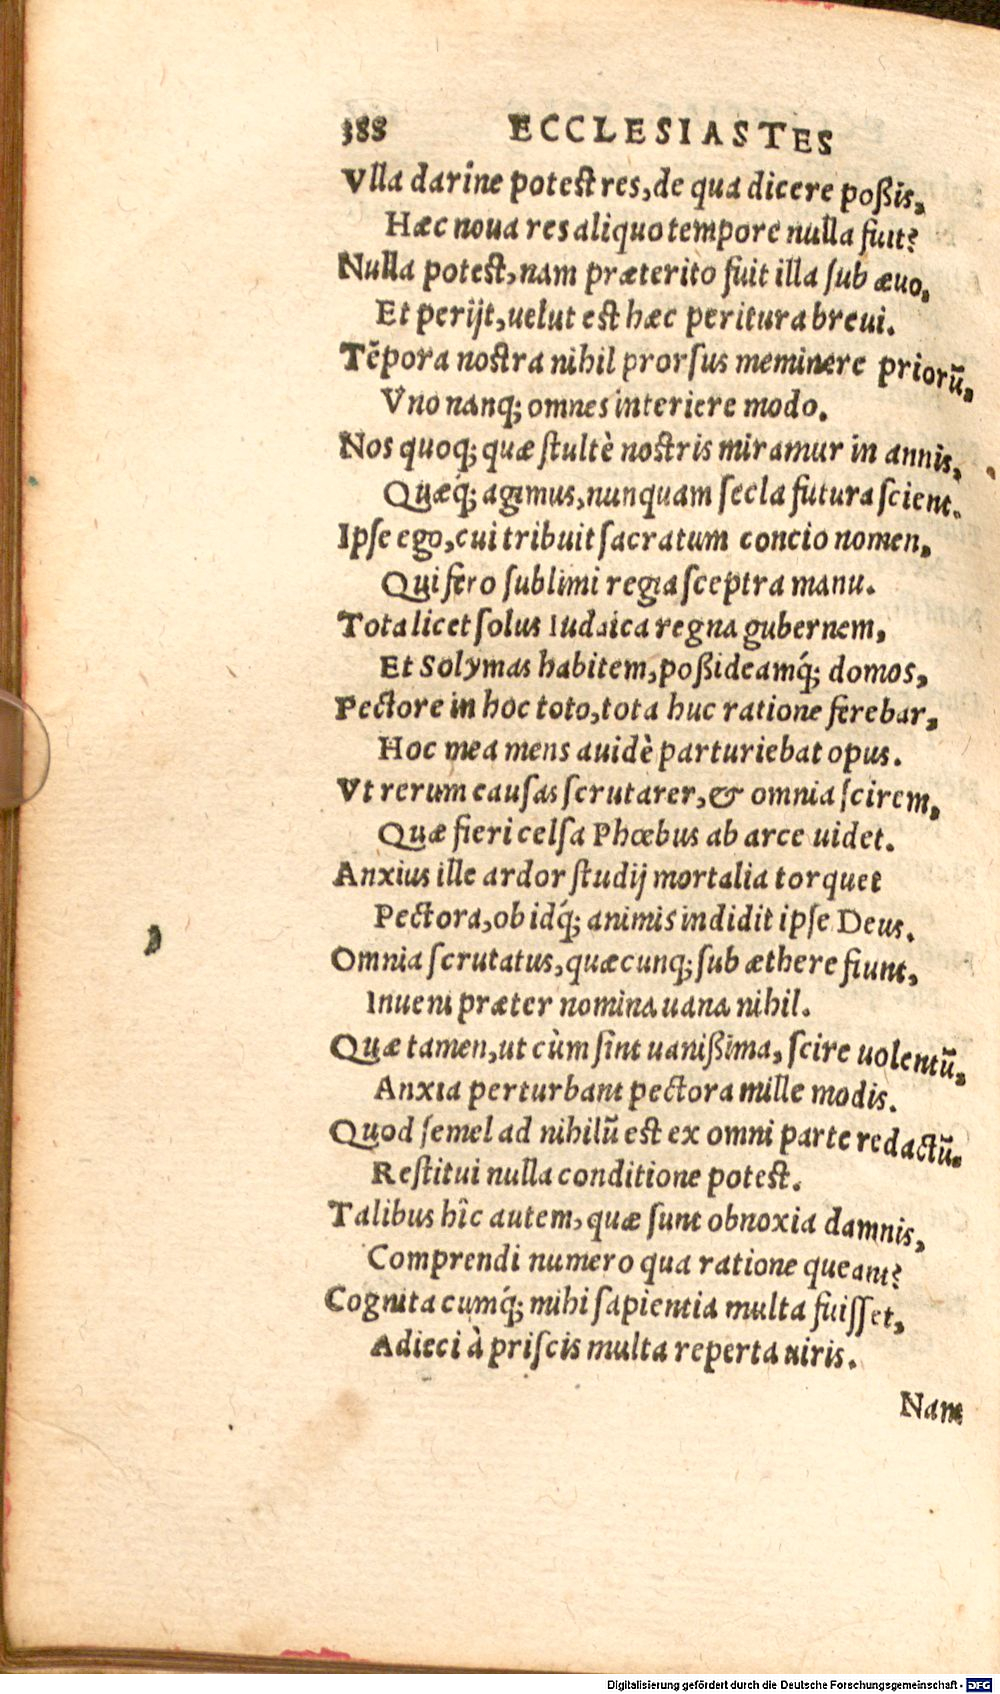 388 ECCLESIASTES
Vlla darine potest res, de qua dicere poßis,
Hæc noua res aliquo tempore nulla fuit?
Nulla potest, nam præterito fuit illa sub æuo,
Et perijt, uelut est hæc peritura breui.
Tẽpora nostra nihil prorsus meminere priorũ,
Vno nanq; omnes interiere modo.
Nos quoq; quæ stultè nostris miramur in annis,
Quæq́; agimus, nunquam secla futura scient.
Ipse ego, cui tribuit sacratum concio nomen,
Qui fero sublimi regia sceptra manu.
Tota licet solus Iudaica regna gubernem,
Et Solymas habitem, poßideamq́; domos,
Pectore in hoc toto, tota huc ratione ferebar,
Hoc mea mens auidè parturiebat opus.
Vt rerum causas scrutarer, & omnia scirem,
Quæ fieri celsa Phœbus ab arce uidet.
Anxius ille ardor studij mortalia torquet
Pectora, ob idq́; animis indidit ipse Deus.
Omnia scrutatus, quæcunq; sub æthere fiunt,
Inueni præter nomina uana nihil.
Quæ tamen, ut cùm sint uanißima, scire uolentũ,
Anxia perturbant pectora mille modis.
Quod semel ad nihilũ est ex omni parte redactũ.
Restitui nulla conditione potest.
Talibus hîc autem, quæ sunt obnoxia damnis,
Comprendi numero qua ratione queant?
Cognita cumq́; mihi sapientia multa fuisset,
Adieci à priscis multa reperta uiris.
Nam
Digitalisierung gefördert durch die Deutsche Forschungsgemeinschaft - DFG